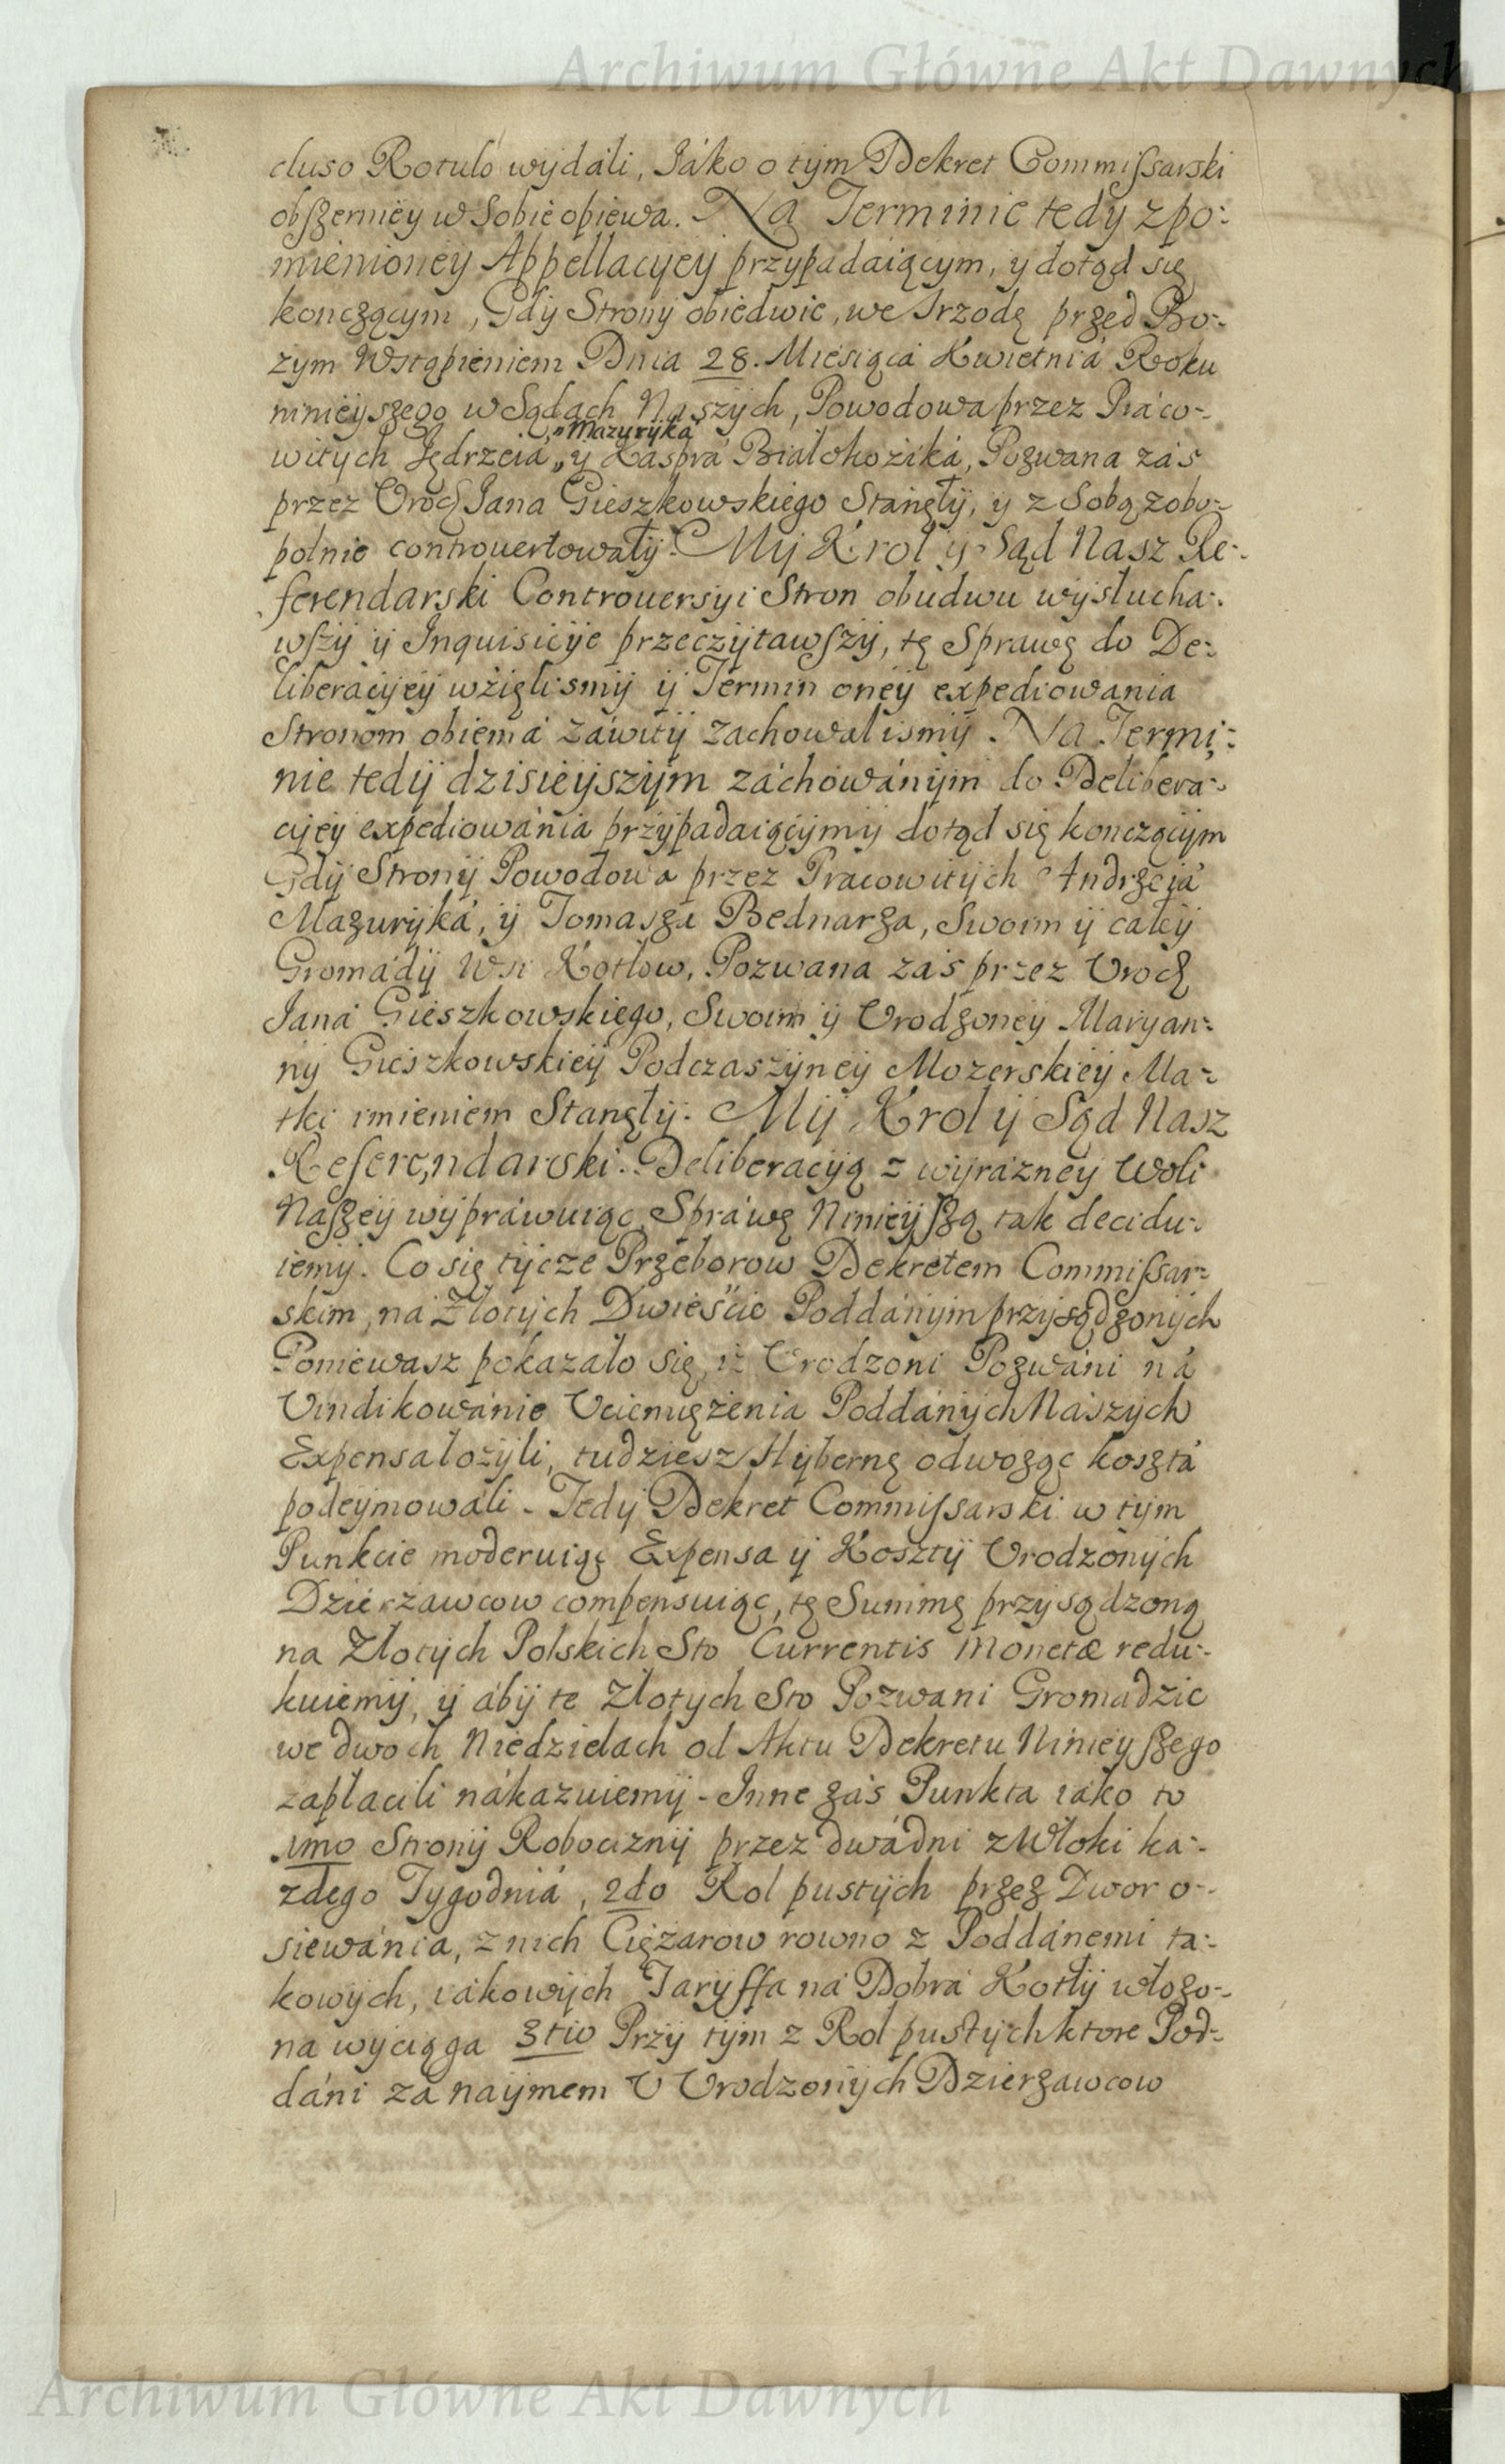 Archiwum Główne Akt Dawnych
cluso Rotuló wydáli, Jáko o tym Dekret Commiſsarski
obſzerniey w Sobie opiewa. Na Terminie tedy z po-
mienioney Appellacyey przypadaiącym, y dotąd się
konczącym, Gdy Strony obiedwie, we Srzodę przed Bo-
zym Wstąpieniem Dnia 28. Miesiąca Kwietniá Roku
ninieyszego w Sądach Naszych, Powodowa przez Práco-
"Mazuryká
witych Jędrzeiá „ y Kasprá Białohożiká, Pozwana zás
przez Urodz Jana Gieszkowskiego Stanęły, y z Sobą zobo-
polnie controuertowały. My Krol y Sąd Nasz Re-
ferendarski Controuersyi Stron obudwu wysłucha-
wſzy y Inquisicye przeczytawſzy, tę Sprawę do De-
liberacyey wzięlismy y Termin oney expediowania
Stronom obiemá záwity zachowalismy. Na Termi-
nie tedy dzisieyszym záchowánym do Delibera-
cyey expediowánia przypadaiącymy dotąd się kończącym
Gdy Strony Powodowa przez Pracowitych Andrzeiá
Mazuryká, y Tomasza Bednarza, Swoim y całey
Gromády Wsi Kotłow, Pozwana zás przez Urodz
Janá Gieszkowskiego, Swoim y Urodzoney Maryan-
ny Gieszkowskiey Podczaszyney Mozerskiey Ma-
tki imieniem Stanęły. My Krol y Sąd Nasz
Referendarski. Deliberacyą z wyrázney Woli
Naſzey wypráwuiąc Spráwę Ninieyſzą tak decidu-
iemy. Co się tycze Przeborow Dekretem Commiſsar-
skim, ná Złotych Dwieście Poddánym przysądzonych
Poniewasz pokazało się, iż Urodzoni Pozwáni ná
Vindikowánie Uciemiężenia Poddánych Naszych
Expensa łożyli, tudziesz Hybernę odwożąc kosztá
podeymowáli - Tedy Dekret Commiſsarski w tym
Punkcie moderuiąc Expensa y Koszty Urodzonych
Dzierzawcow compensuiąc, tę Summę przysądzoną
na Złotych Polskich Sto Currentis Monetæ redu-
kuiemy, y áby te Złotych Sto Pozwani Gromadzie
we dwoch Niedzielach od Aktu Dekretu Ninieyſzego
zapłacili nákazuiemy - Inne zás Punkta iáko to
1mo Strony Robocizny przez dwá dni z Włoki ka-
zdego Tygodniá, 2do Rol pustych przez Dwor o-
siewánia, z nich Ciężarow rowno z Poddánemi ta-
kowych, iákowych Taryffa ná Dobrá Kotły włożo-
na wyciąga 3tio Przy tym z Rol pustych ktore Pod-
dáni zá naymem U Urodzonych Dzierzawcow
Archiwum Główne Akt Dawnych